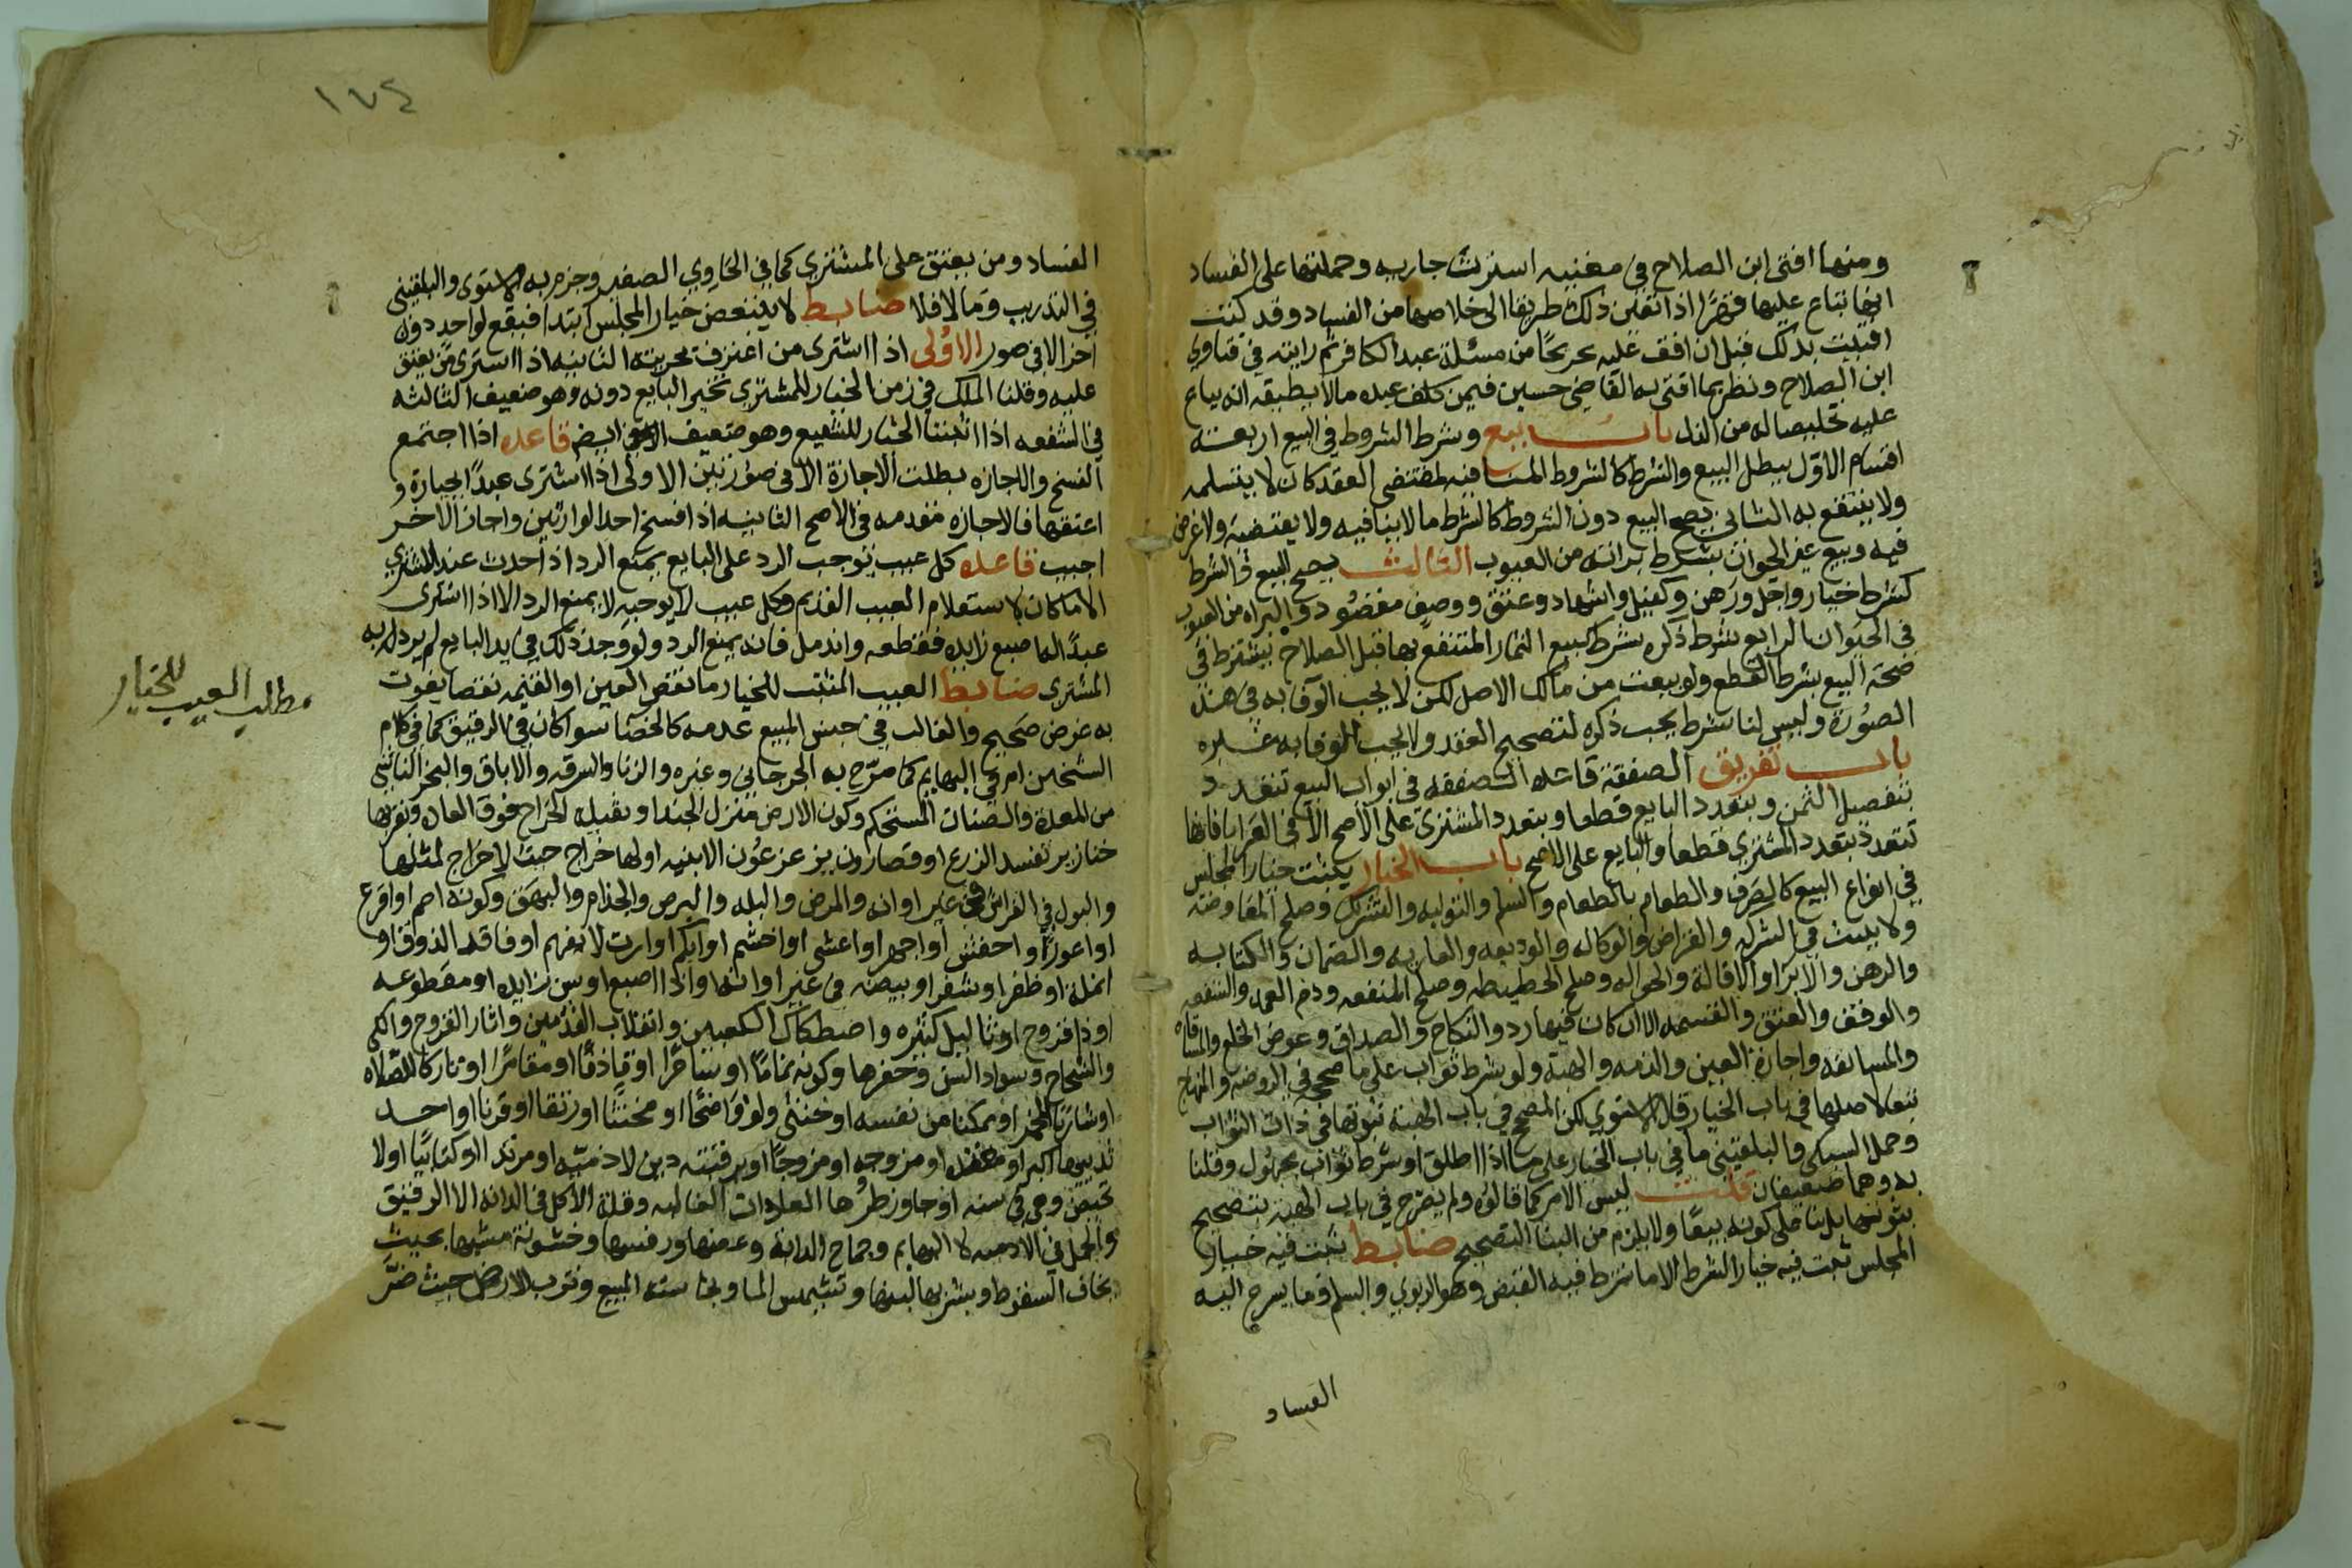 ومنها افتى ابن الصلاح في مغنيه اشترت جاريه وحملتها على الفساد
انها تباع عليها قهرًا اذا تعين ذلك طريقا الى خلاصها من الفساد وقد كنت
افتيت بذلك قبل ان اقف عليه تخريجًا من مسئلة عبد الكافر ثم رايته في فتاوى
ابن الصلاح ونظيرها افتى به القاضي حسين فيمن كلف عبده مالا يطيقه انه يباع
عليه تخليصا له من الذل باب بيع وشرط الشروط في البيع اربعة
اقسام الاول يبطل البيع والشرط كالشروط المنافيه لمقتضى العقد كان لا يتسلمه
ولا ينتفع به الثاني يصح البيع دون الشروط كالشرط مالا ينافيه ولا يقتضيه ولا غرض
فيه وبيع غير الحيوان بشرط براته من العيوب الثالث يصح البيع والشرط
كشرط خيار واجل ورهن وكفيل واشهاد وعتق ووصف مقصود والبراه من العيوب
في الحيوان الرابع شرط ذكره شرط كبيع الثمار المنتفع بها قبل الصلاح يشترط في
صحة البيع بشرط القطع ولو بيعت من مالك الاصل لكن لا يجب الوفا به في هذه
الصورة وليس لنا شرط يجب ذكره لتصحيح العقد ولا يجب الوفا به غيره
باب تفريق الصفقة قاعده الصفقه في ابواب البيع تتعدد
بتفصيل الثمن وبتعدد البايع قطعا وبتعدد المشتري على الاصح الا في العرايا فانها
تتعدد بتعدد المشتري قطعا والبايع على الاصح باب الخيار يثبت خيار المجلس
في انواع البيع كالصرف والطعام بالطعام والسلم والتوليه والتشريك وصلح المعاوضه
ولا يثبت في الشركه والقراض والوكاله والوديعه والعاريه والضمان والكتابه
والرهن والابرا والاقالة والحواله وصلح الحطيطه وصلح المنفعه ودم العمد والشفعه
والوقف والعتق والقسمه الا ان كان فيها رد والنكاح والصداق وعوض الخلع والمساقاه
والمسابقه واجارة العين والذمه والهبة ولو بشرط ثواب على ما صححه في الروضه والمنهاج
تبعا لاصلها في باب الخيار قال الاسنوي لكن المصحح في باب الهبة ثبوتها في ذات الثواب
وحمل السبكي والبلقيني ما في باب الخيار على ما اذا اطلق او شرط ثواب مجهول وقلنا
به وهما ضعيفان قلت ليس الامر كما قالوه ولم يصرح في باب الهبه بتصحيح
ثبوتها بل بنا على كونه بيعًا ولا يلزم من البنا التصحيح ضابط يثبت فيه خيار
المجلس ثبت فيه خيار الشرط الا ما شرط فيه القبض وهو الربوي والسلم وما يسرع اليه
الفساد
١٧٤
الفساد ومن يعتق على المشتري كما في الحاوي الصغير وجزم به الاسنوى والبلقيني
في التدريب ومالا فلا ضابط لا يتبعض خيار المجلس ابتدا فيقع لواحد دون
اخر الا في صور الاولى اذا اشترى من اعترف بحريته الثانيه اذا اشترى من يعتق
عليه وقلنا الملك في زمن الخيار للمشتري تخير البايع دونه وهو ضعيف الثالثه
في الشفعه اذا اثبتنا الخيار للشفيع وهو ضعيف ايضا قاعده اذا اجتمع
الفسخ والاجازه بطلت الاجازة الا في صورتين الاولى اذا اشترى عبدًا بجارية و
اعتقها فالاجازه مقدمه في الاصح الثانيه اذا فسخ احد الوارثين واجاز الاخر
اجيب قاعده كل عيب يوجب الرد على البايع يمنع الرد اذا حدث عند المشتري
الا ما كان لاستعلام العيب القديم وكل عيب لا يوجبه لا يمنع الرد الا اذا اشترى
عبدًا له اصبع زايده فقطعه واندمل فانه يمنع الرد ولو وجد ذلك في يد البايع لم يرد له به
المشتري ضابط العيب المثبت للخيار ما نقص العين او القيمه نقصا يفوت
به غرض صحيح والغالب في جنس المبيع عدمه كالخصا سوا كان في الرقيق كما في كلام
الشخين ام في البهايم كما صرح به الجرجاني وغيره والزنا والسرقه والاباق والبخر الناشي
من المعدة والصنان المستحكم وكون الارض منزل الجند او بقبل الخراج فوق العاده وبقربها
خنازير تفسد الزرع او قصارون يزعزعون الابنيه او لها خراج حيث لا خراج لمثلها
والبول في الفراش في غير اوانه والمرض والبله والبرص والجذام والبهق وكونه اصم او اقرع
او اعور او اخفش او اجهر او اعشى او اخشم او ابكم او ارت لا يفهم او فاقد الذوق او
انملة او ظفر او شفر او بيضه في غير اوانها واذا اصبع او سن زايده او مقطوعه
او ذا قروح او ثاليل كثيره واصطكاك الكعبين وانقلاب القدمين واثار القروح والكى
والشجاج وسواد السن وحفرها وكونه نماما او ساحرًا او قاذفًا او مقامرًا او تاركا للصلاه
او شاربًا للخمر او ممكنا من نفسه او خنثى ولو واضحًا او مخنثًا او رتقا او قرنا او احد
ثدييها اكبر او معتده او مزوجه او مزوجًا او برقبته دين لا ذمته او مرتد او كتابيًا او لا
تحيض وهي في سنه او جاوز طهرها العادات الغالبه وقلة الاكل في الدابه لا الرقيق
والحمل في الادميه لا البهايم وجماح الدابة وعضها ورفسها وخشونة مشيها بحيث
يخاف السقوط وبشربها لبنها وتشميس الما ونجاسته المبيع وقرب الارض حيث ضر
مطلب العيب للخيار